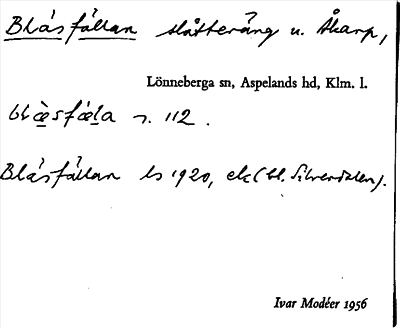 Blåsfällan slåtteräng u. Åkarp,
Lönneberga sn, Aspelands hd, Klm. l.
blåsfäla s. 112.
Blåsfällan ls 1920, ek (bl. Silverdalen).
Ivar Modéer 1956